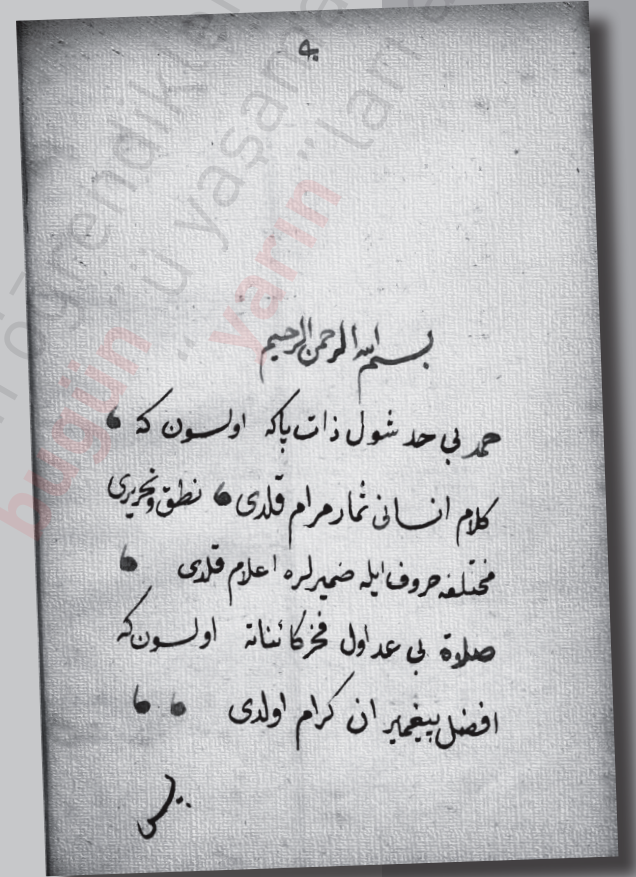 بسم الله الرحمن الرحيم
حمد بی حد شول ذات پاکه اولسون که
كلام انسانی ثمار مرام قلدی نطق و تحریری
مختلفه حروف ایله ضمیرلره اعلام قلدی
صلاوة بی عد اول فخر کائناته اولسون که
افضل پیغمبران کرام اولدی
öğrendikler
"ü yaşama
bugün
yarın"ları